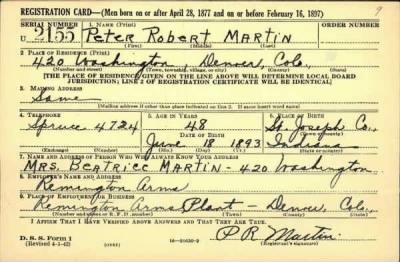 REGISTRATION CARD—(Men born on or after April 28, 1877 and on or before February 16, 1897) 9
SERIAL NUMBER 1. NAME (Print) ORDER NUMBER
U 2155 Peter Robert MARTIN
(First) (Middle) (Last)
2. PLACE OF RESIDENCE (Print)
420 Washington, Denver, Colo,
(Number and street) (Town, township, village, or city) (County) (State)
[THE PLACE OF RESIDENCE GIVEN ON THE LINE ABOVE WILL DETERMINE LOCAL BOARD
JURISDICTION; LINE 2 OF REGISTRATION CERTIFICATE WILL BE IDENTICAL]
3. MAILING ADDRESS
Same
[Mailing address if other than place indicated on line 2. If same insert word same]
4. TELEPHONE 5. AGE IN YEARS 6. PLACE OF BIRTH
Spruce 4724 48 St Joseph Co.,
DATE OF BIRTH (Town or county)
June 18 1893 Indiana
(Exchange) (Number) (Mo.) (Day) (Yr.) (State or country)
7. NAME AND ADDRESS OF PERSON WHO WILL ALWAYS KNOW YOUR ADDRESS
MRS. BEATRICE MARTIN - 420 Washington
8. EMPLOYER'S NAME AND ADDRESS
Remington Arms
9. PLACE OF EMPLOYMENT OR BUSINESS
Remington Arms Plant - Denver, Colo,
(Number and street or R. F. D. number) (Town) (County) (State)
I AFFIRM THAT I HAVE VERIFIED ABOVE ANSWERS AND THAT THEY ARE TRUE.
D. S. S. Form 1
(Revised 4-1-42) (over) 16—21630-2 P R Martin
(Registrant's signature)